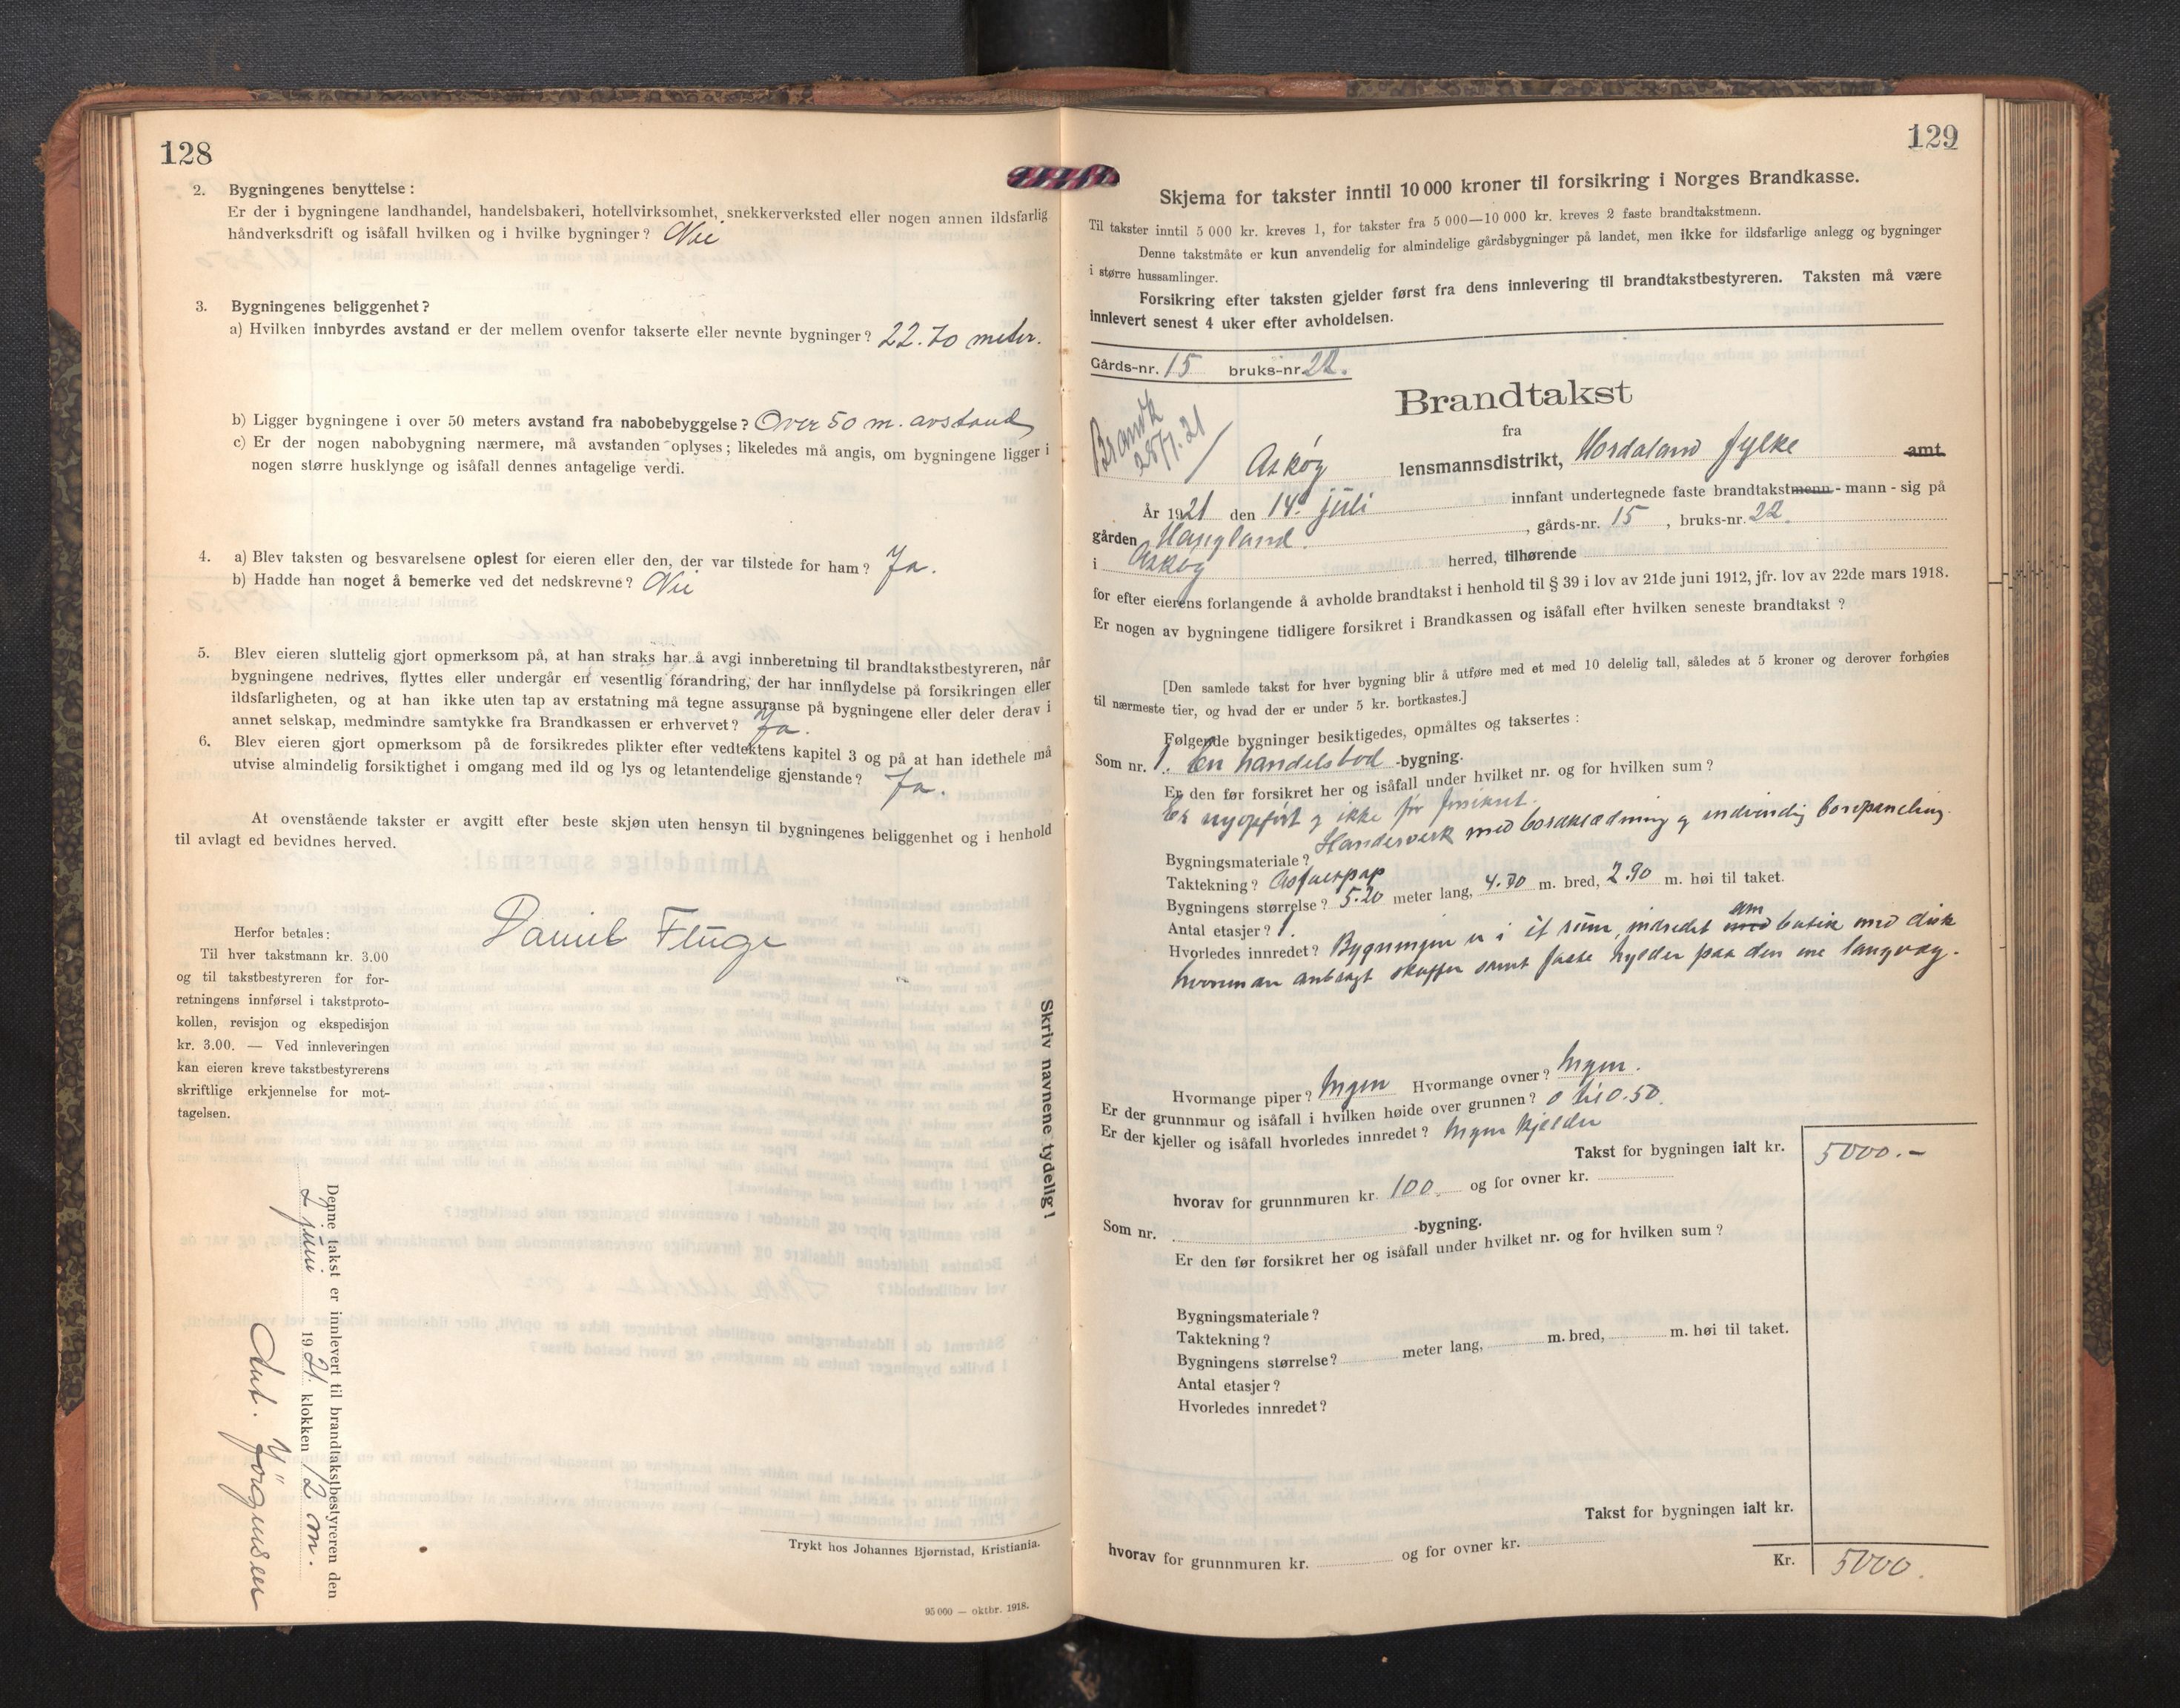 128
2. Bygningenes benyttelse:
Er der i bygningene landhandel, handelsbakeri, hotellvirksomhet, snekkerverksted eller nogen annen ildsfarlig
håndverksdrift og isåfall hvilken og i hvilke bygninger? Nei
3. Bygningenes beliggenhet?
a) Hvilken innbyrdes avstand er der mellem ovenfor takserte eller nevnte bygninger? 22.70 meter.
b) Ligger bygningene i over 50 meters avstand fra nabobebyggelse? Over 50 m. avstand
c) Er der nogen nabobygning nærmere, må avstanden oplyses; likeledes må angis, om bygningene ligger i
nogen større husklynge og isåfall dennes antagelige verdi.
4. a) Blev taksten og besvarelsene oplest for eieren eller den, der var tilstede for ham? Ja.
b) Hadde han noget å bemerke ved det nedskrevne? Nei
5. Blev eieren sluttelig gjort opmerksom på, at han straks har å avgi innberetning til brandtakstbestyreren, når
bygningene nedrives, flyttes eller undergår en vesentlig forandring, der har innflydelse på forsikringen eller
ildsfarligheten, og at han ikke uten tap av erstatning må tegne assuranse på bygningene eller deler derav i
annet selskap, medmindre samtykke fra Brandkassen er erhvervet? Ja.
6. Blev eieren gjort opmerksom på de forsikredes plikter efter vedtektens kapitel 3 og på at han idethele må
utvise almindelig forsiktighet i omgang med ild og lys og letantendelige gjenstande? Ja.
At ovenstående takster er avgitt efter beste skjøn uten hensyn til bygningenes beliggenhet og i henhold
til avlagt ed bevidnes herved.
Daniel Fluge
Herfor betales:
Til hver takstmann kr. 3.00
og til takstbestyreren for for-
retningens innførsel i takstproto-
kollen, revisjon og ekspedisjon
kr. 3.00. — Ved innleveringen
kan eieren kreve takstbestyrerens
skriftlige erkjennelse for mot-
tagelsen.
Skriv navnene tydelig!
Denne takst er innlevert til brandtakstbestyreren den
juni 1921. klokken 12 m.
Ant. Jörgensen
Trykt hos Johannes Bjørnstad, Kristiania.
95 000 — oktbr. 1918.
129
Skjema for takster inntil 10 000 kroner til forsikring i Norges Brandkasse.
Til takster inntil 5 000 kr. kreves 1, for takster fra 5 000—10 000 kr. kreves 2 faste brandtakstmenn.
Denne takstmåte er kun anvendelig for almindelige gårdsbygninger på landet, men ikke for ildsfarlige anlegg og bygninger
i større hussamlinger.
Forsikring efter taksten gjelder først fra dens innlevering til brandtakstbestyreren. Taksten må være
innlevert senest 4 uker efter avholdelsen.
Gårds-nr. 15 bruks-nr. 22.
Brandtakst
fra
Brandk 28/7.21
Askøy lensmannsdistrikt, Hordaland fylke amt.
År 1921 den 14. juli innfant undertegnede faste brandtakstmenn - mann - sig på
gården Haugland, gårds-nr. 15, bruks-nr. 22.
i Askøy herred, tilhørende
for efter eierens forlangende å avholde brandtakst i henhold til § 39 i lov av 21de juni 1912, jfr. lov av 22de mars 1918.
Er nogen av bygningene tidligere forsikret i Brandkassen og isåfall efter hvilken seneste brandtakst?
[Den samlede takst for hver bygning blir å utføre med et med 10 delelig tall, således at 5 kroner og derover forhøies
til nærmeste tier, og hvad der er under 5 kr. bortkastes.]
Følgende bygninger besiktigedes, opmåltes og taksertes:
Som nr. 1. En handelsbod -bygning.
Er den før forsikret her og isåfall under hvilket nr. og for hvilken sum?
Er nyopført og ikke før forsikret.
Bygningsmateriale? med bordklædning og indvendig bordpaneling.
Taktekning? Asfaltpap
Bygningens størrelse? 5.20 meter lang, 4.70 m. bred, 2.90 m. høi til taket.
Antal etasjer? 1.
Hvorledes innredet? Bygningen er i et rum, indredet med butik med disk
hvorunder anbragt skuffer samt faste hylder paa den ene langvæg.
Hvormange piper? Ingen Hvormange ovner? Ingen.
Er der grunnmur og isåfall i hvilken høide over grunnen? 0 til 0.50.
Er der kjeller og isåfall hvorledes innredet? Ingen kjelder
Takst for bygningen ialt kr. 5000.-
hvorav for grunnmuren kr. 100. og for ovner kr.
Som nr. -bygning.
Er den før forsikret her og isåfall under hvilket nr. og for hvilken sum?
Bygningsmateriale?
Taktekning?
Bygningens størrelse? meter lang, m. bred, m. høi til taket.
Antal etasjer?
Hvorledes innredet?
Takst for bygningen ialt kr.
hvorav for grunnmuren kr. og for ovner kr.
Kr. 5000.